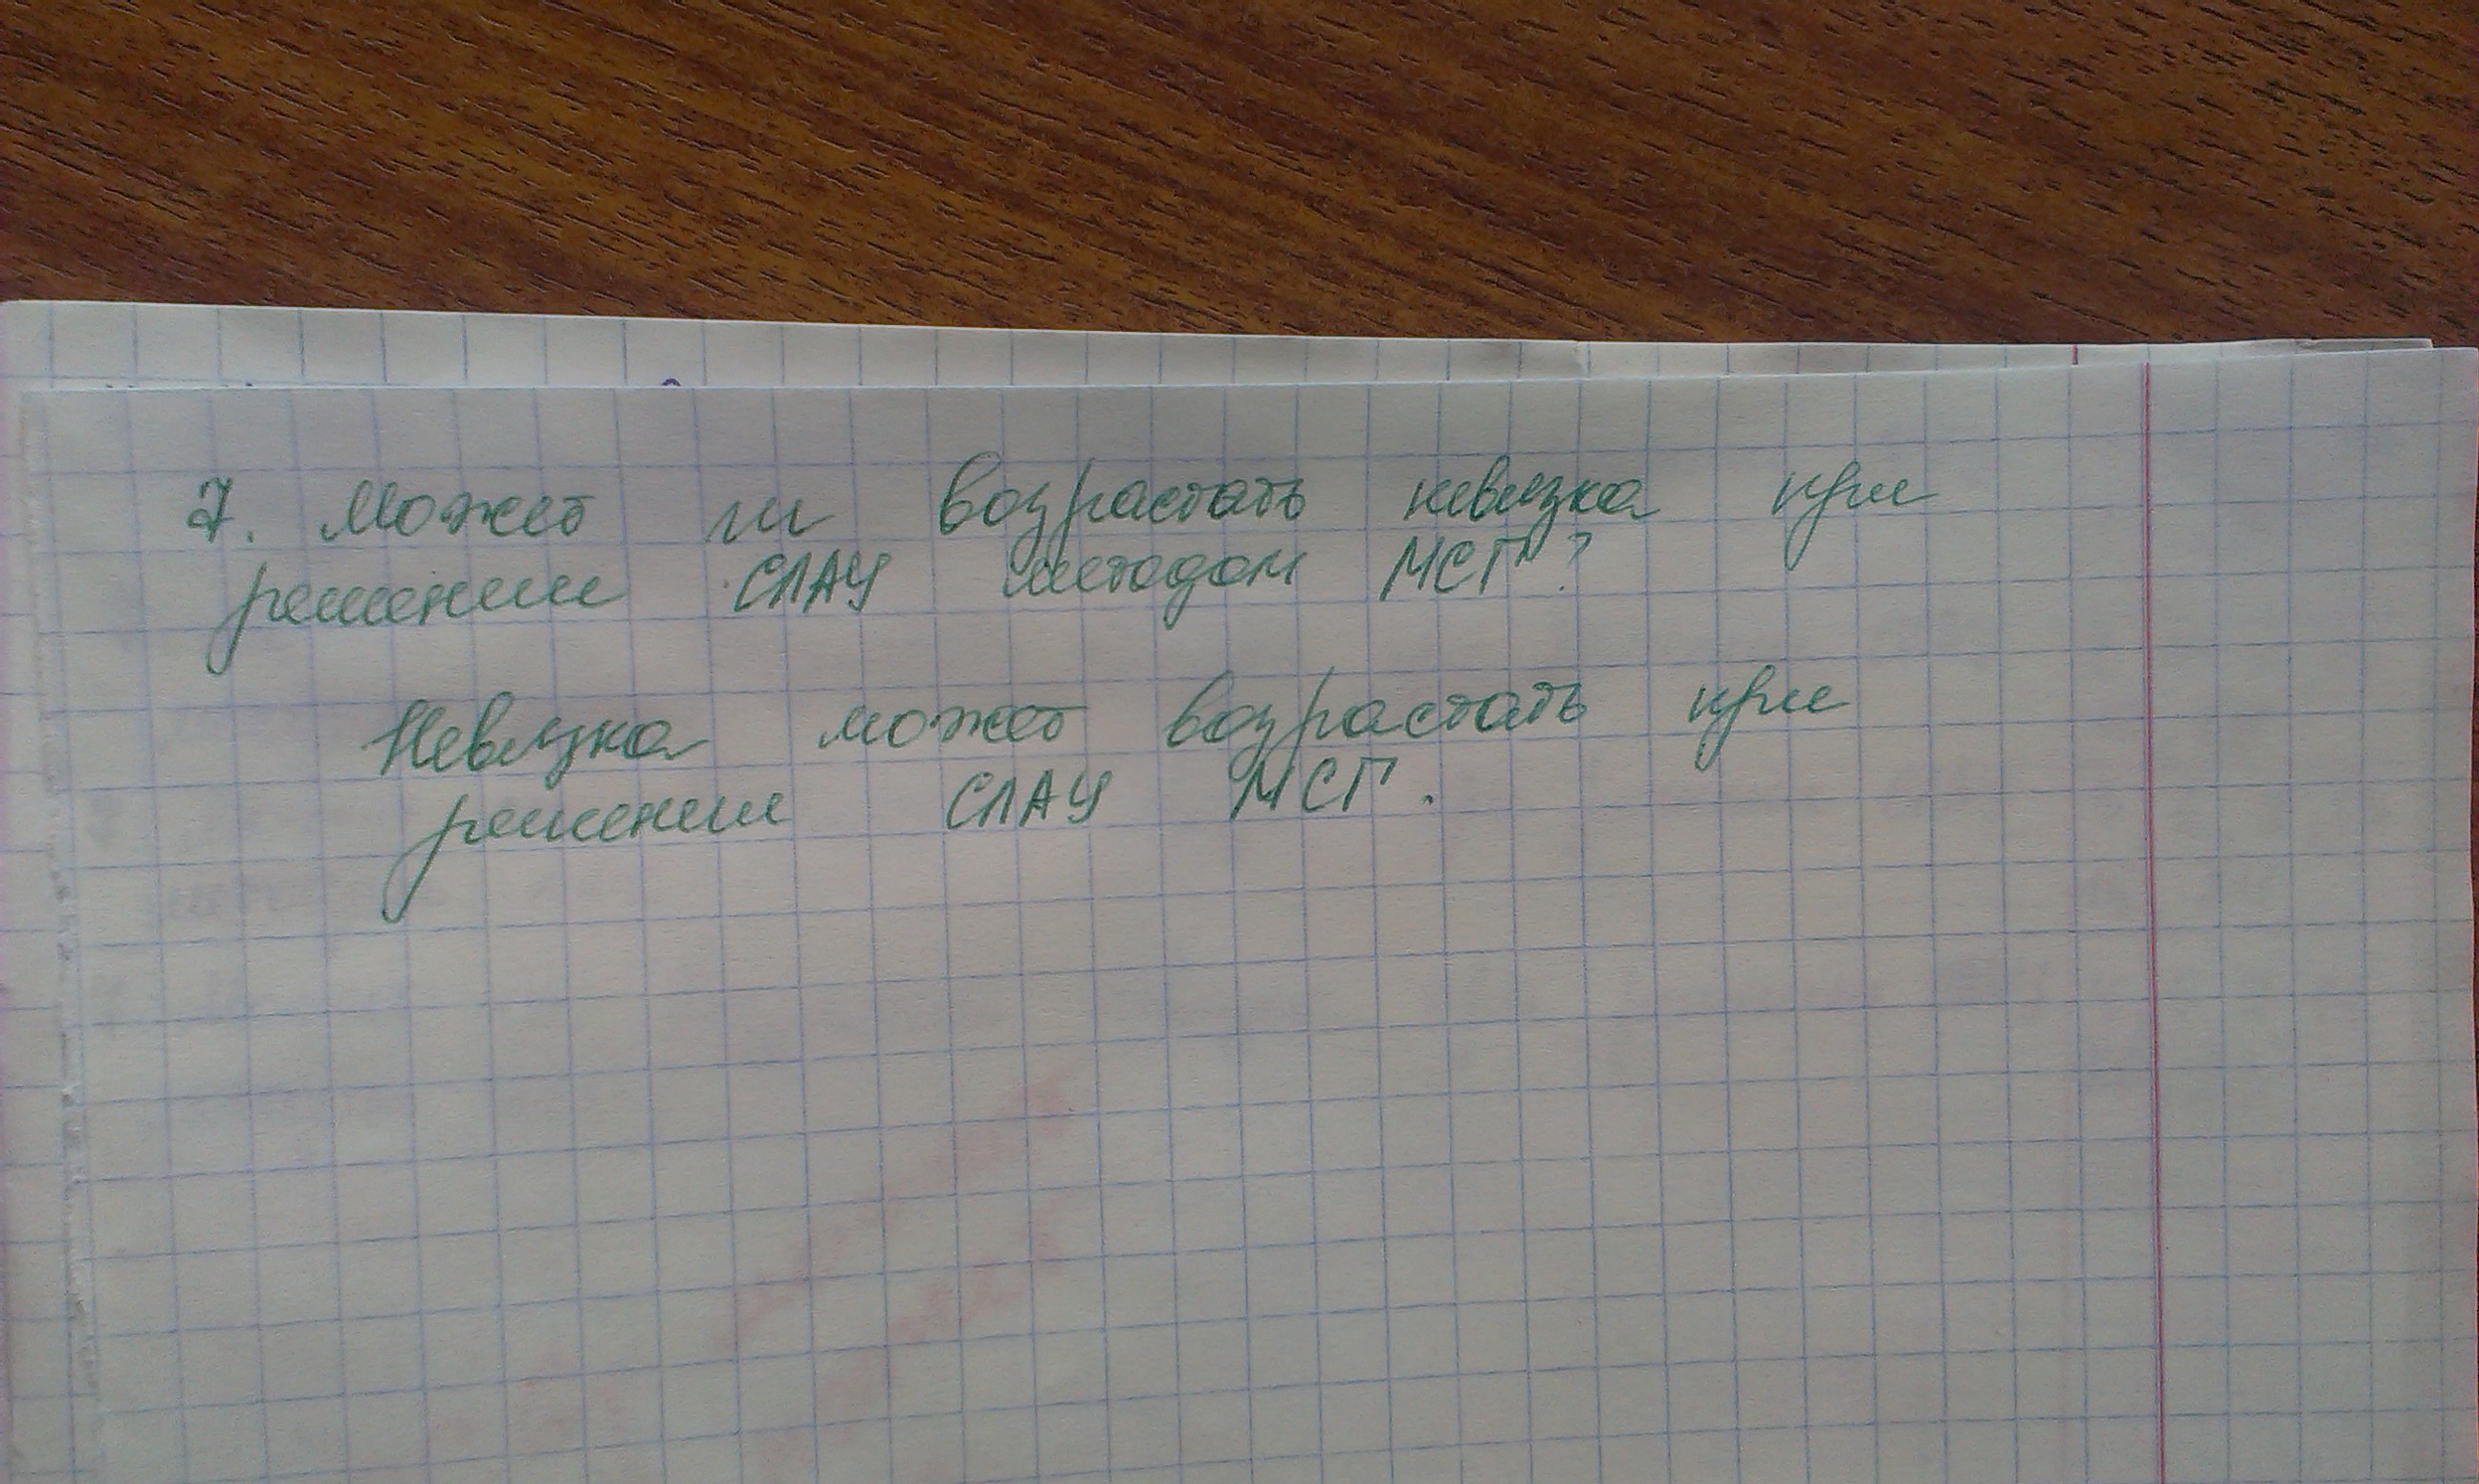 7. Может ли возрастать невязка при
решении СЛАУ методом МСГ?
Невязка может возрастать при
решении СЛАУ МСГ.